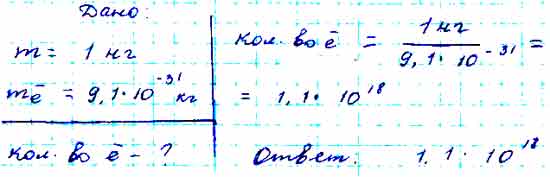 Дано:
m = 1 нг
mē = 9,1·10⁻³¹ кг
кол. во ē - ?
кол. во ē = 1 нг / 9,1·10⁻³¹ =
= 1,1·10¹⁸
Ответ: 1,1·10¹⁸